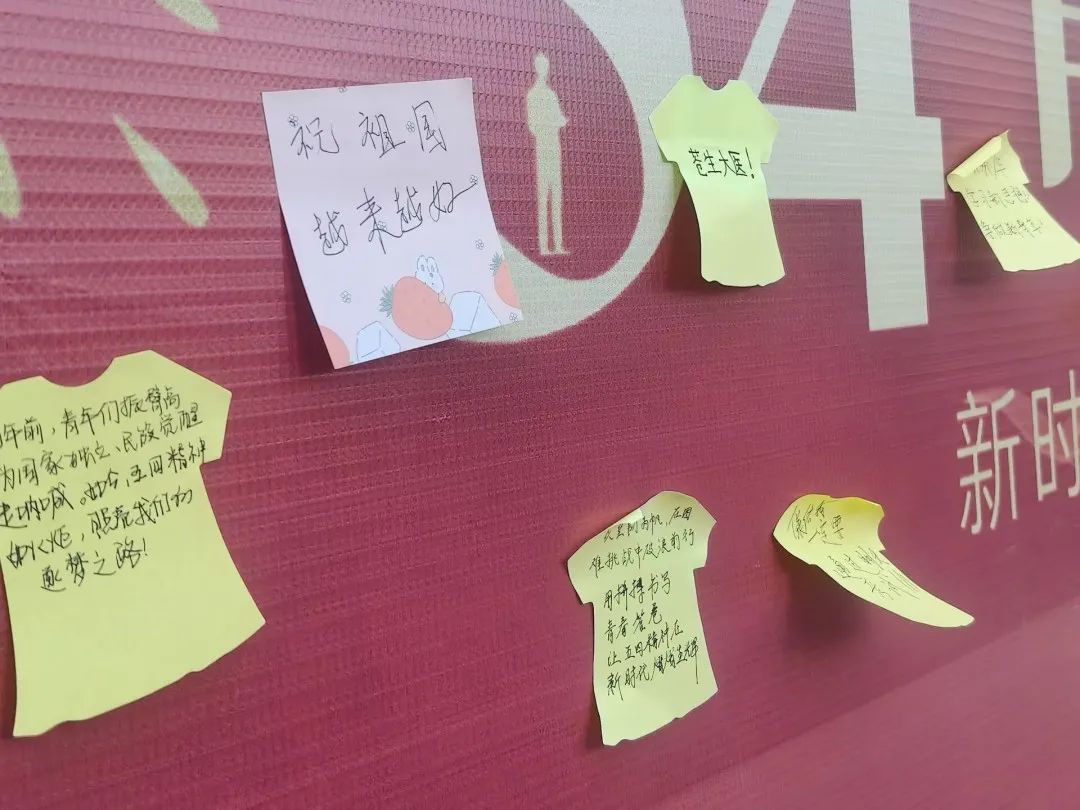 54
祝祖国
越来越好
苍生大医!
新时
年前,青年们振臂高
为国家独立、民族觉醒
呐喊。如今,五四精神
如火炬,照亮我们的
逐梦之路!
难挑战中破浪前行
用拼搏书写
青春答卷
让五四精神在
新时代熠熠生辉